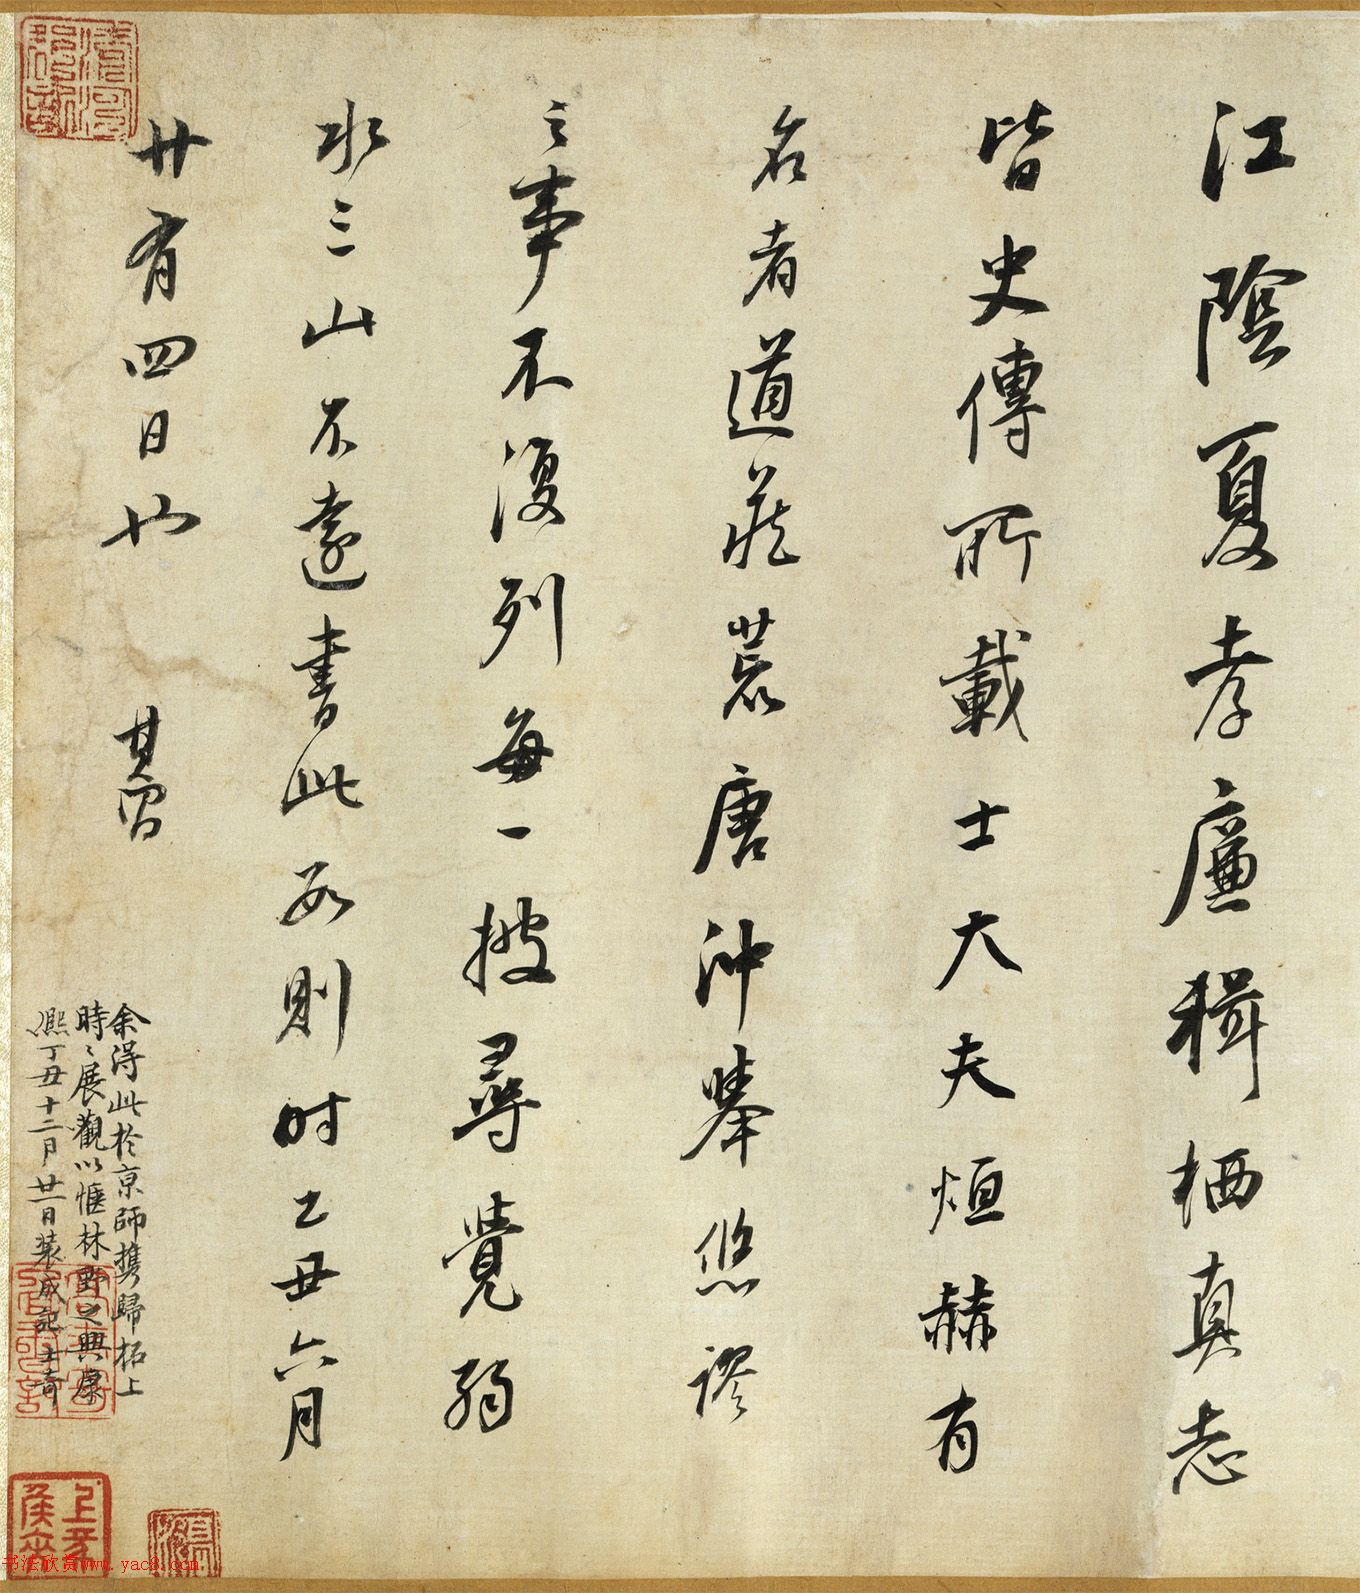 江陰夏孝廉輯栖真志
皆史傳所載士大夫烜赫有
名者道藏荒唐沖舉悠謬
之事不復列每一披尋覺弱
水三山不遠書此以則时乙丑六月
廿有四日也 其昌
余得此於京師攜歸柘上
時〻展觀以愜林野之興康
熙丁丑十二月廿一日裝成記士奇
书法欣赏www.yac8.com